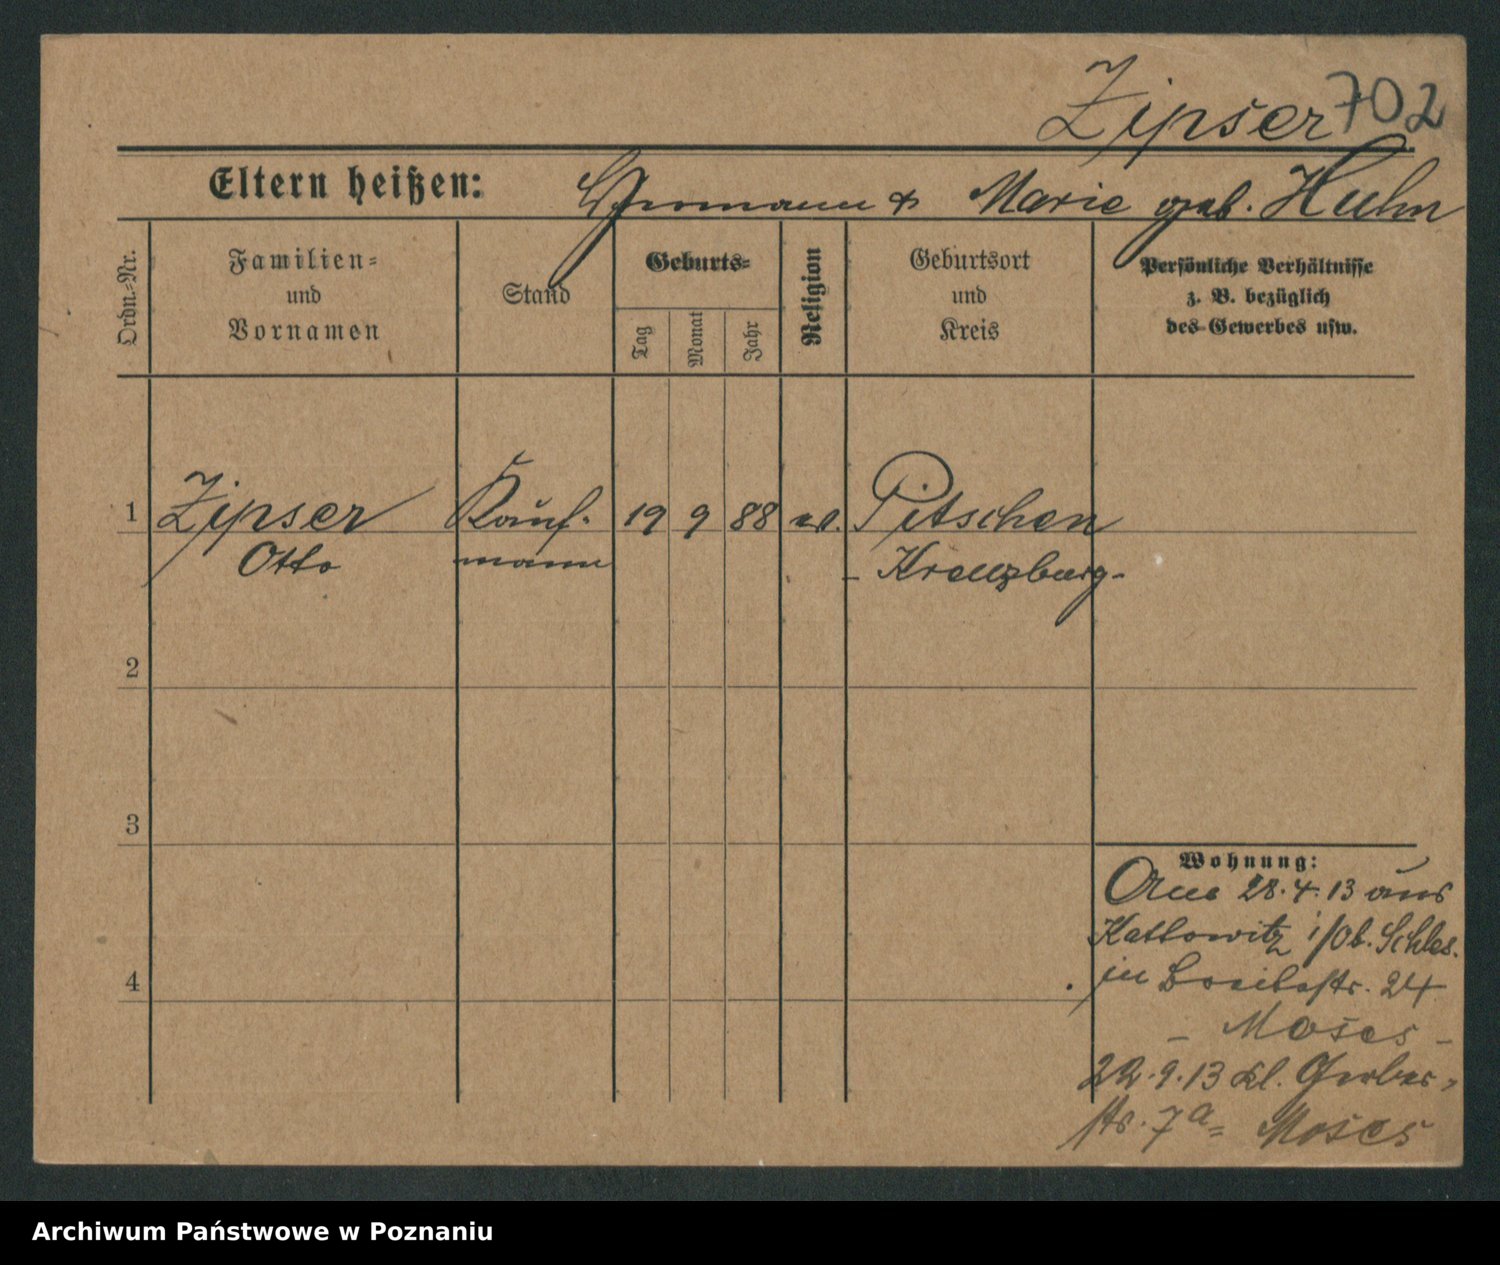 Zipser 702
Eltern heißen: Hermann & Marie geb. Huhn
Ordn.-Nr.
Familien-
und
Vornamen
Stand
Geburts-
Tag
Monat
Jahr
Religion
Geburtsort
und
Kreis
Persönliche Verhältnisse
z. B. bezüglich
des Gewerbes usw.
1 Zipser Kauf- 19 9 88 ev. Pitschen
Otto mann - Kreuzburg -
2
3
4
Wohnung:
Am 28.4.13 aus
Kattowitz i/Ob. Schles.
in 24
- Moses -
22.9.13 kl. Gerber-
str. 7a = Moses
Archiwum Państwowe w Poznaniu